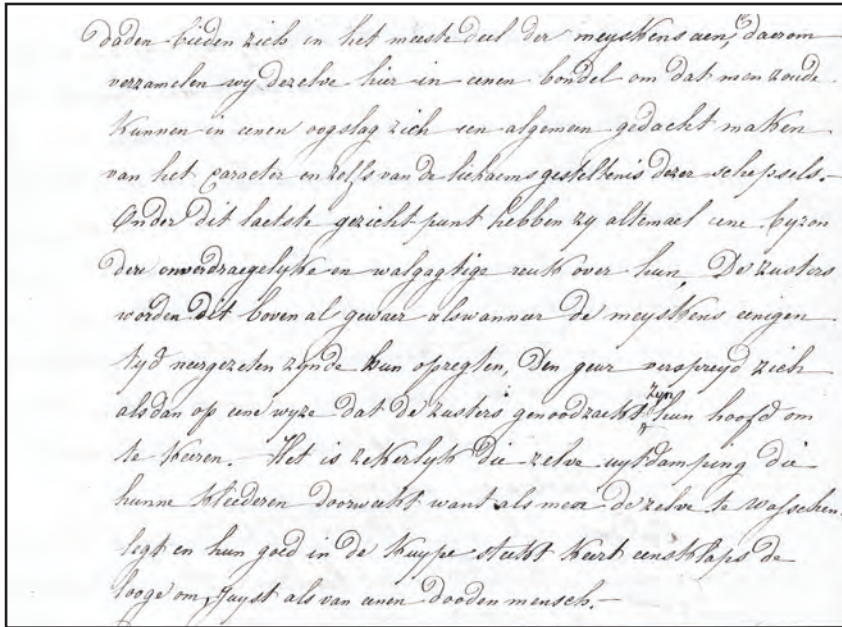 daden bieden zich in het meeste deel der meyskens aen, (3) daerom
verzamelen wy dezelve hier in eenen bondel om dat men zoude
kunnen in eenen oogslag zich een algemeen gedacht maken
van het caracter en zelfs van de lichaems gesteltenis dezer schepsels.-
Onder dit laetste gezicht punt hebben zy altemael eene byzon
dere onverdraegelyke en walgagtige reuk over hun, De zusters
worden dit boven al gewaer alswanneer de meyskens eenigen
tyd neergezeten zynde hun opregten, Den geur verspreyd zich
alsdan op eene wyze dat de zusters genoodzackt zyn hun hoofd om
te keeren. Het is zekerlyk die zelve uytdamping die
hunne kleederen doorweekt want als men dezelve te wasschen
legt en hun goed in de kuype steekt keert eensklaps de
looge om, juyst als van eenen dooden mensch.-